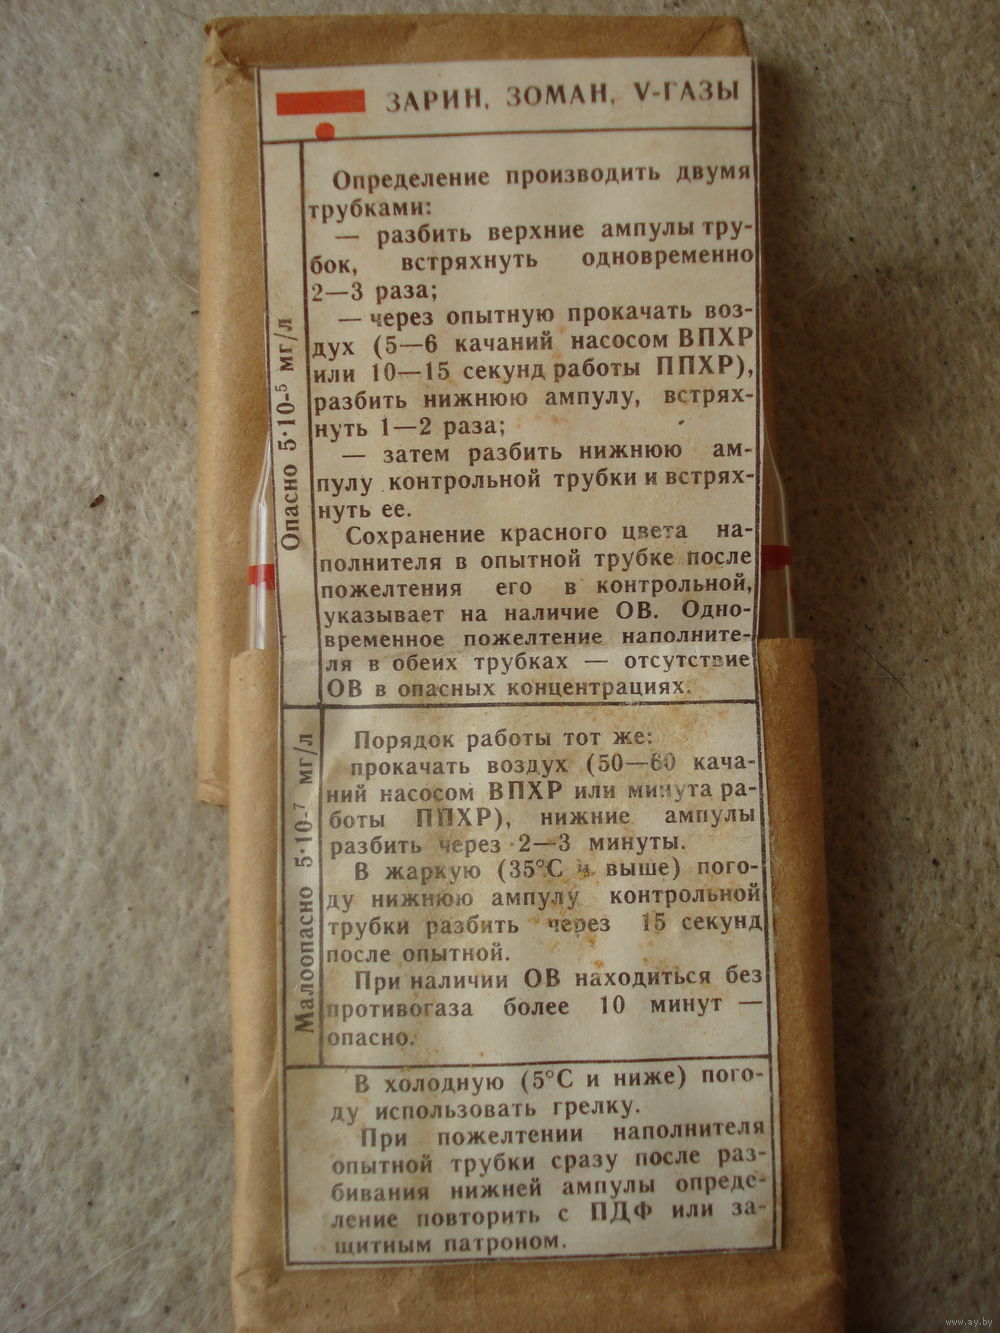 ЗАРИН, ЗОМАН, V-ГАЗЫ
Опасно 5·10-⁵ мг/л
Определение производить двумя
трубками:
— разбить верхние ампулы тру-
бок, встряхнуть одновременно
2—3 раза;
— через опытную прокачать воз-
дух (5—6 качаний насосом ВПХР
или 10—15 секунд работы ППХР),
разбить нижнюю ампулу, встрях-
нуть 1—2 раза;
— затем разбить нижнюю ам-
пулу контрольной трубки и встрях-
нуть ее.
Сохранение красного цвета на-
полнителя в опытной трубке после
пожелтения его в контрольной,
указывает на наличие ОВ. Одно-
временное пожелтение наполните-
ля в обеих трубках — отсутствие
ОВ в опасных концентрациях.
Малоопасно 5·10-⁷ мг/л
Порядок работы тот же:
прокачать воздух (50—60 кача-
ний насосом ВПХР или минута ра-
боты ППХР), нижние ампулы
разбить через 2—3 минуты.
В жаркую (35°С и выше) пого-
ду нижнюю ампулу контрольной
трубки разбить через 15 секунд
после опытной.
При наличии ОВ находиться без
противогаза более 10 минут —
опасно.
В холодную (5°С и ниже) пого-
ду использовать грелку.
При пожелтении наполнителя
опытной трубки сразу после раз-
бивания нижней ампулы опреде-
ление повторить с ПДФ или за-
щитным патроном.
www.ay.by